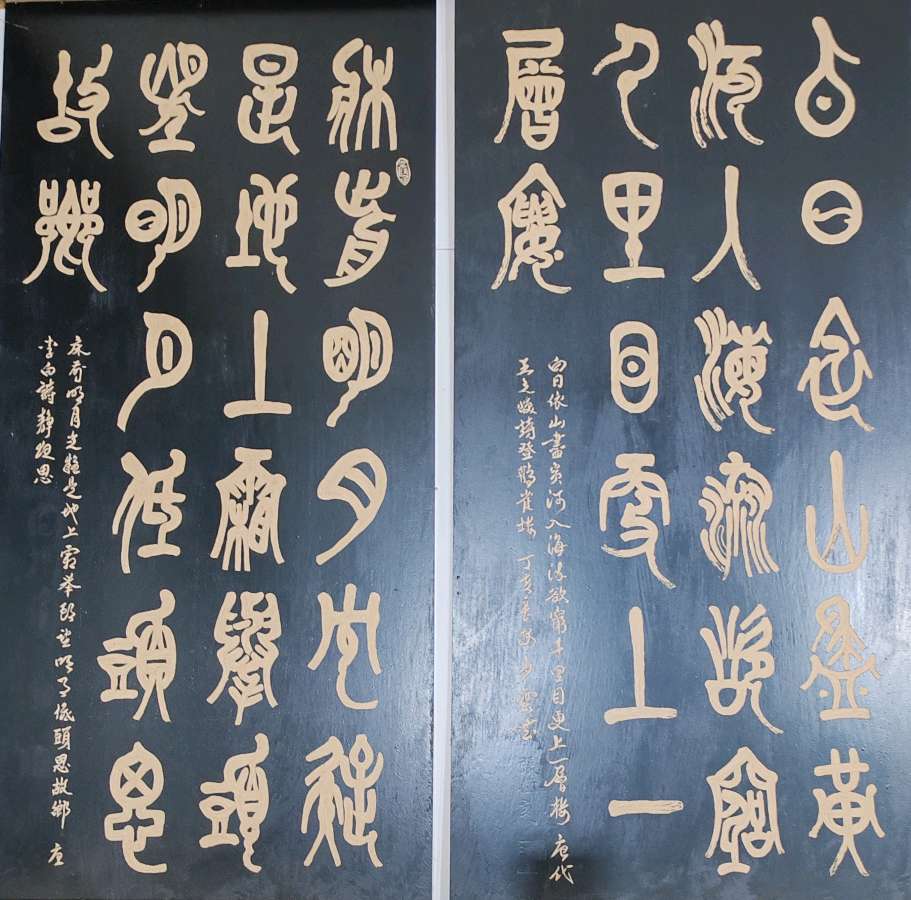 白日依山盡黄
河入海流欲窮
千里目更上一
層樓
白日依山盡黄河入海流欲窮千里目更上一層楼 唐代
王之渙詩登鸛雀楼 丁亥年
床前明月光疑
是地上霜舉頭
望明月低頭思
故鄉
床前明月光疑是地上霜举頭望明月低頭思故鄉 唐
李白詩靜夜思